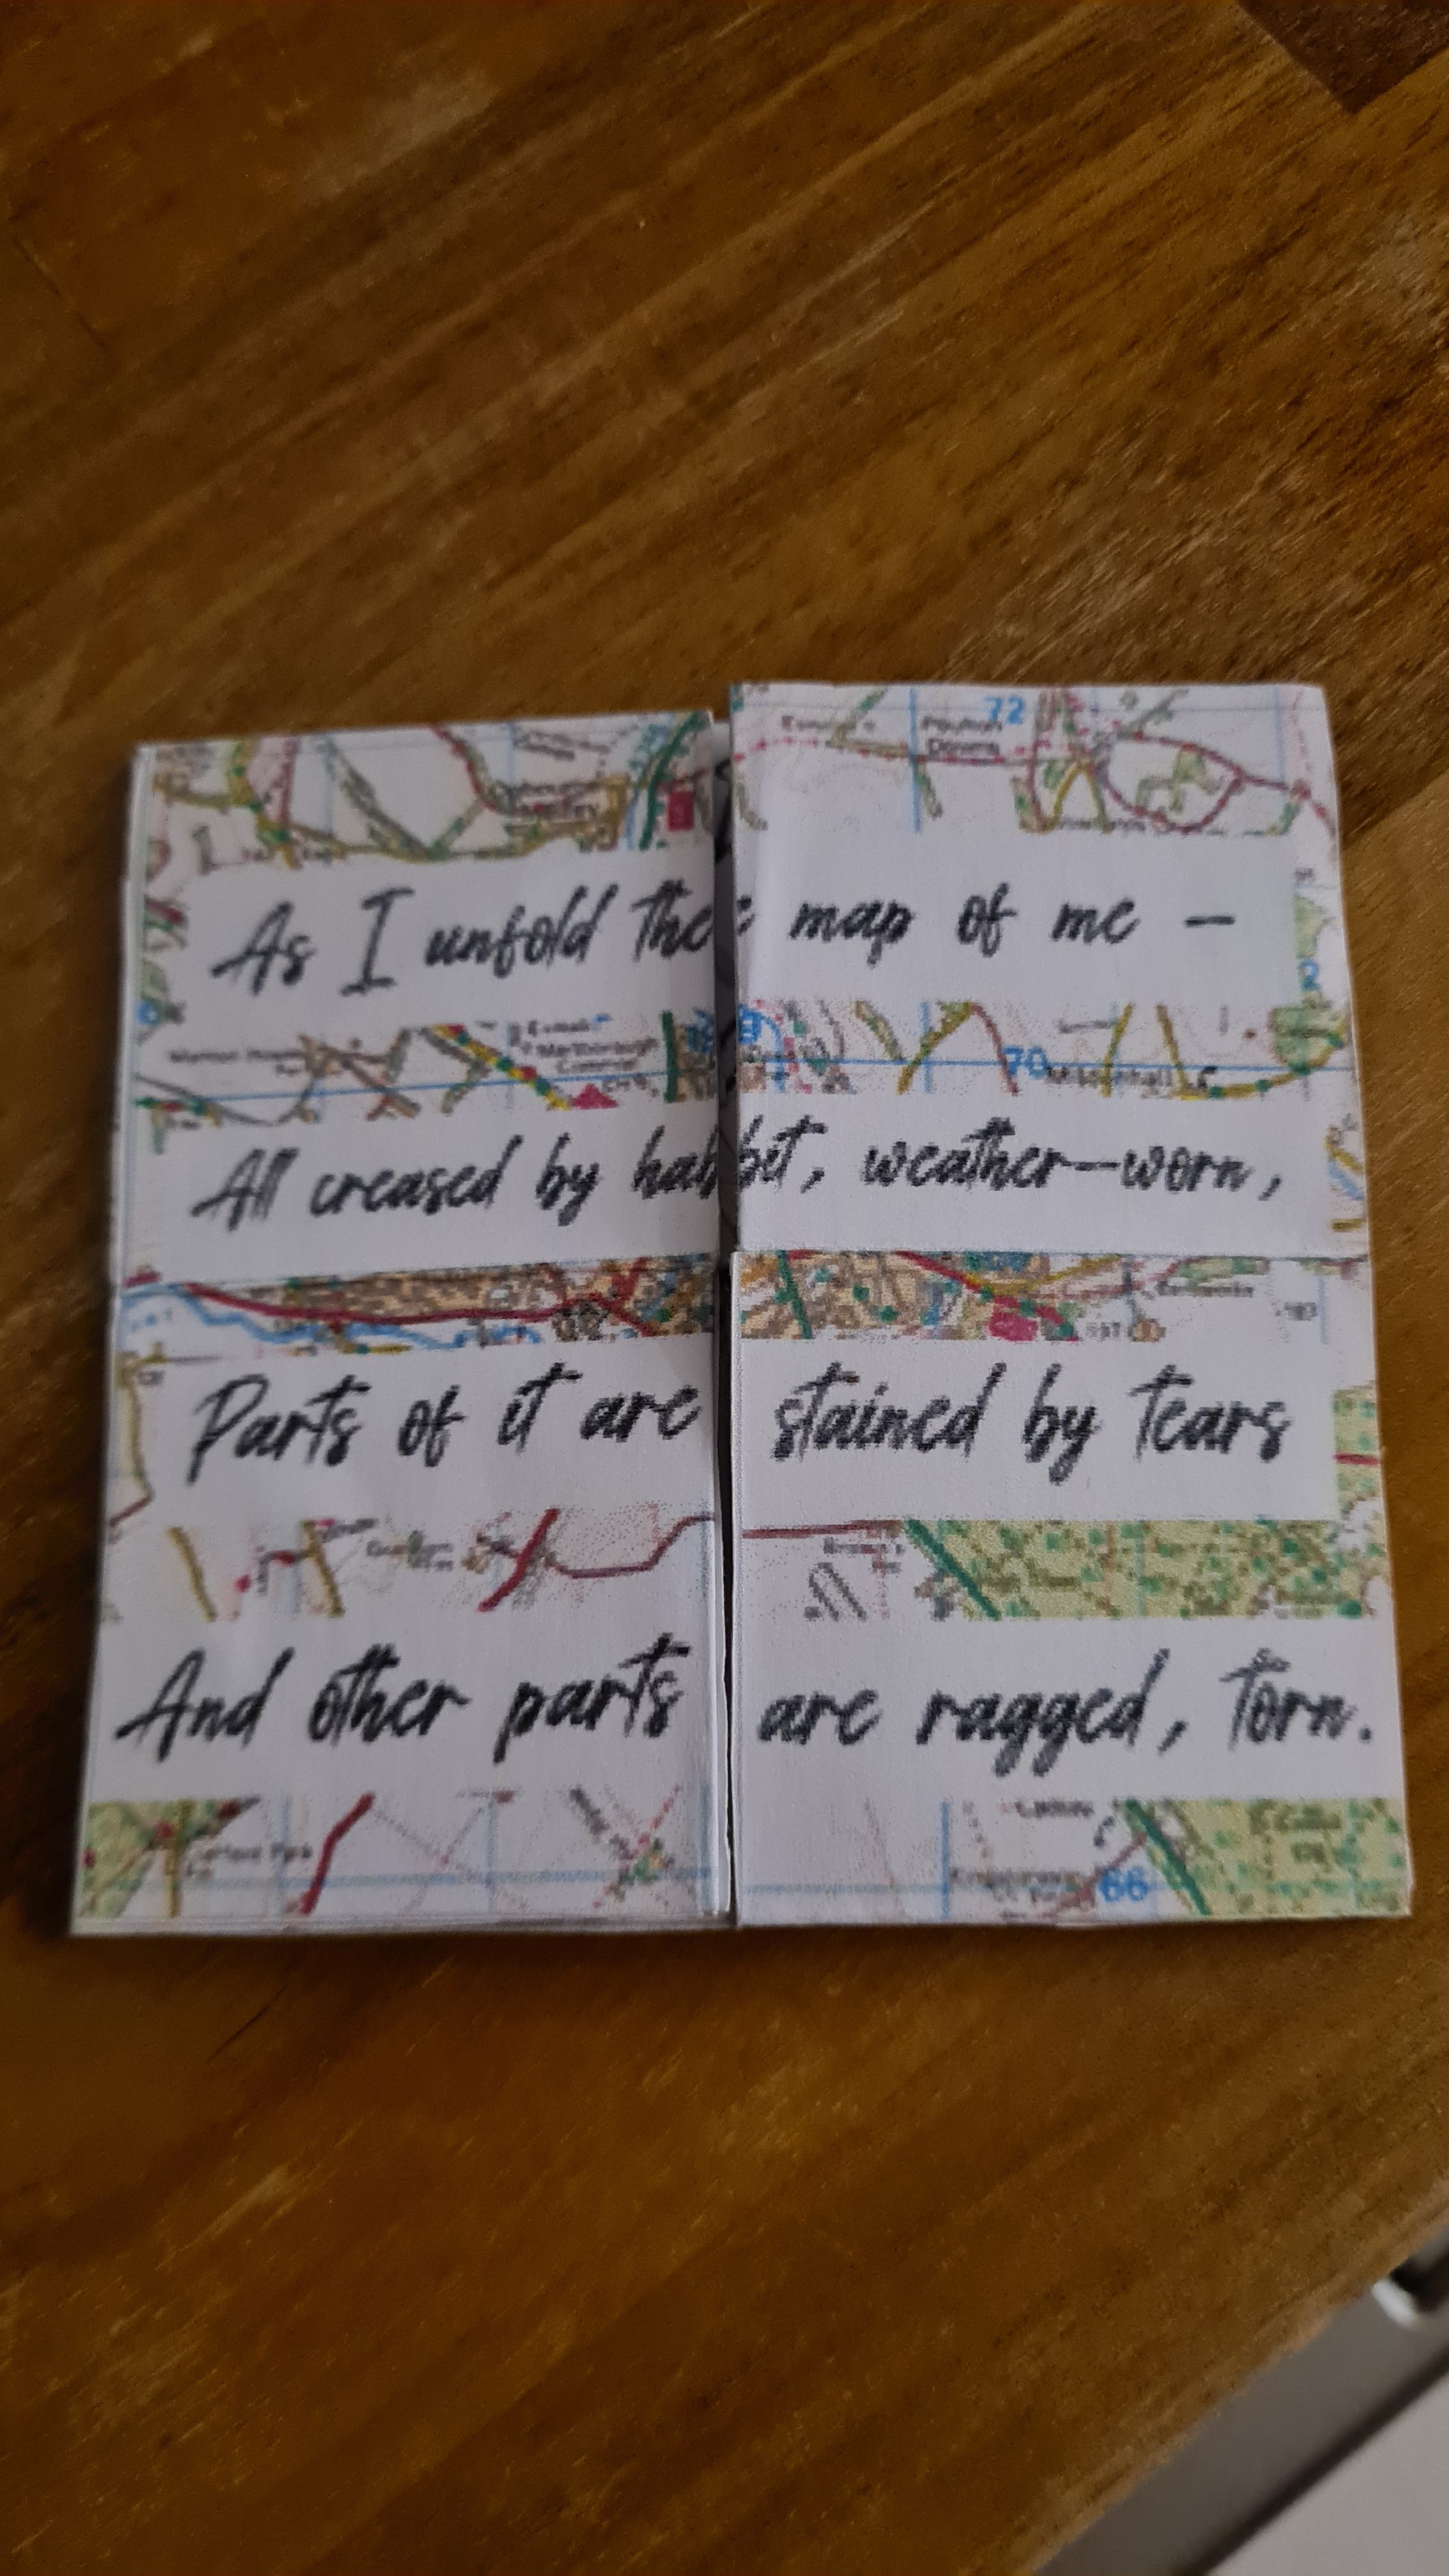 As I unfold the map of me –
All creased by habit, weather-worn,
Parts of it are stained by tears
And other parts are ragged, torn.
72
70
66